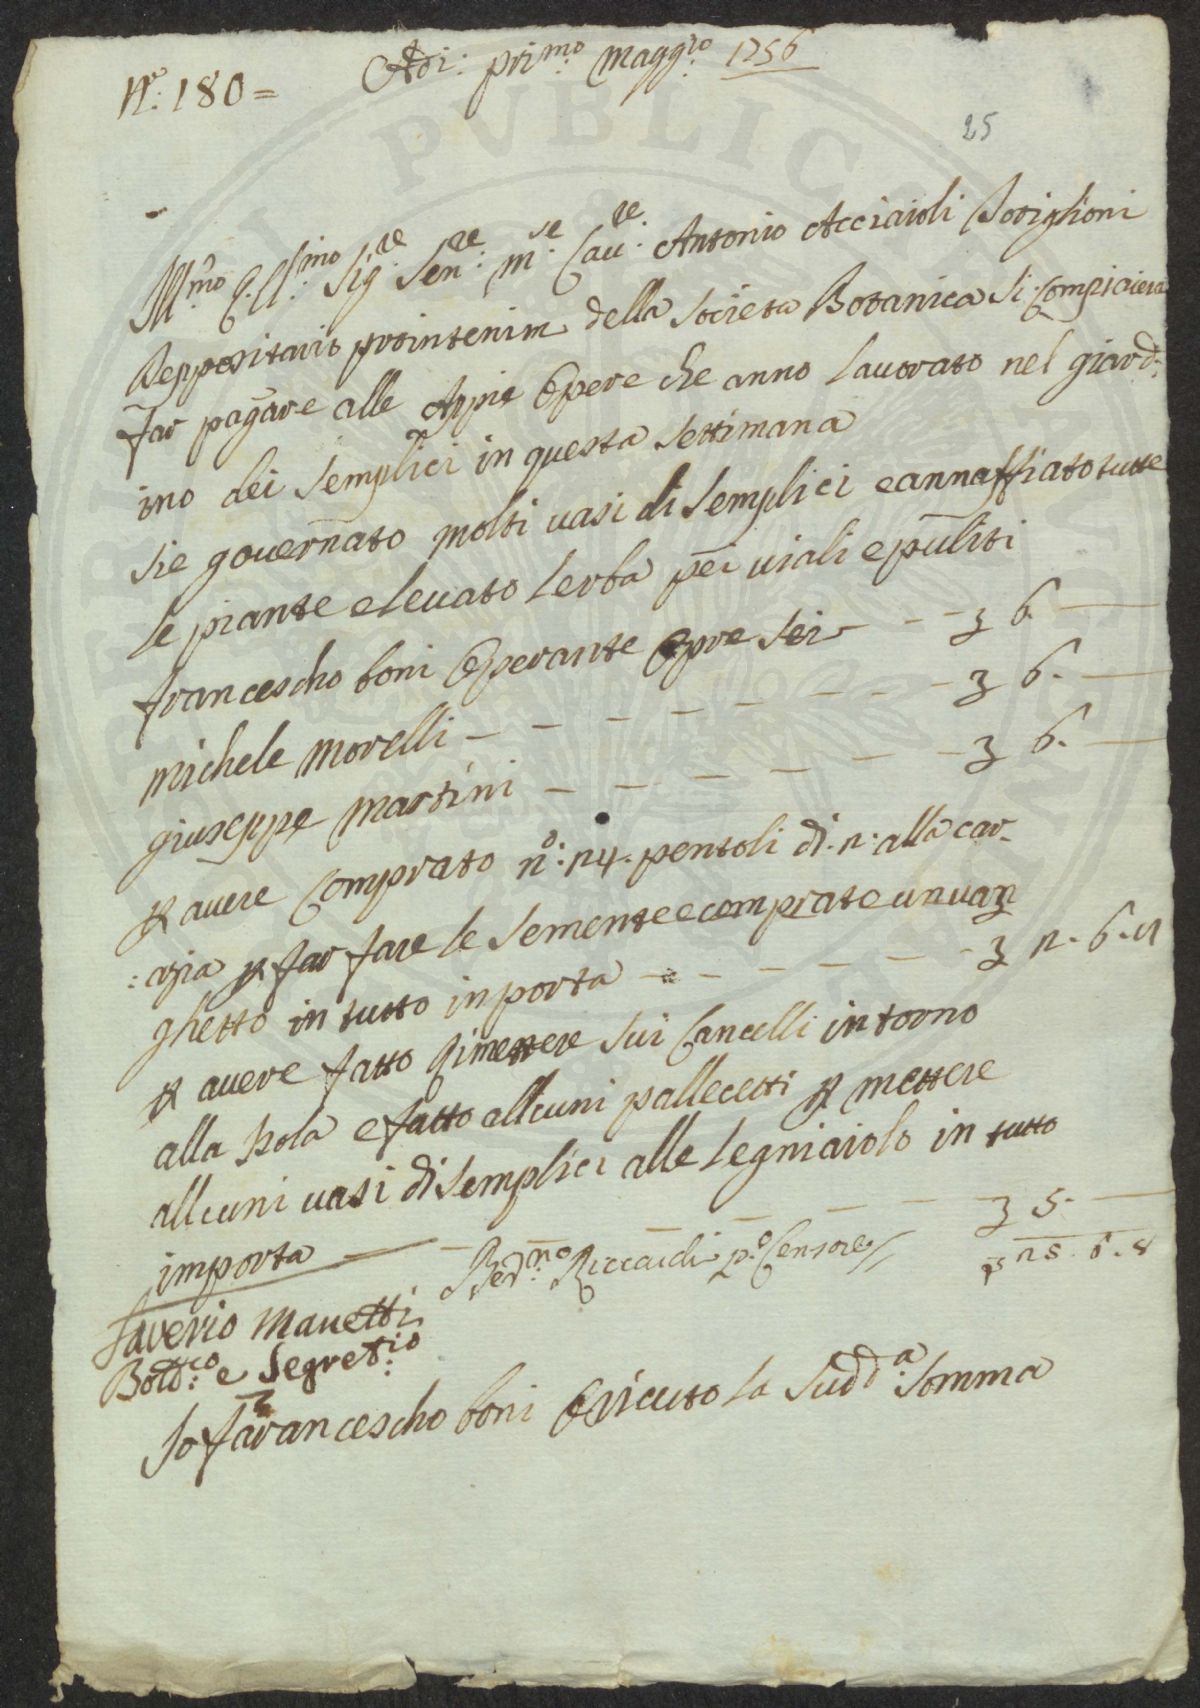 N.º 180 =
Adi: prim.º Magg.io 1756
25
Ill.mo E Cl.mo Sig.re Sen.re M.se Cau.re Antonio Acciaioli
Reppositario prointenim della Societa Botanica Si Compiacera
far pagare alle Appie Opere che anno lauorato nel giard:
ino dei Semplici in questa Settimana
Sie gouernato molti uasi di Semplici e annaffiato tutte
le piante e leuato lerba pei uiali e puliti
francescho boni Operante Opre Sei - - - 3 6 —
Michele Morelli - - - - - - - - 3 6. —
giuseppe Martini - - - - - - - 3 6. —
p auere Comprato nº: 24. pentoli di. 2. alla cra-
: zia p far fare le Semente e comprato un uan
ghetto in tutto inporta - - - - - - 3 2. 6.
p auere fatto Rimettere Sui Cancelli intorno
alla Isola e fatto allcuni pallecetti p mettere
allcuni uasi di Semplici alle legniaiolo in tutto
importa — - - - - - - 3 5. —
Riccardi p.º Censore 25. 6. 8
Saverio Manetti
Bott.co e Segret.io
Io francescho boni O riceuto la Sudd.a Somma
PVBLIC